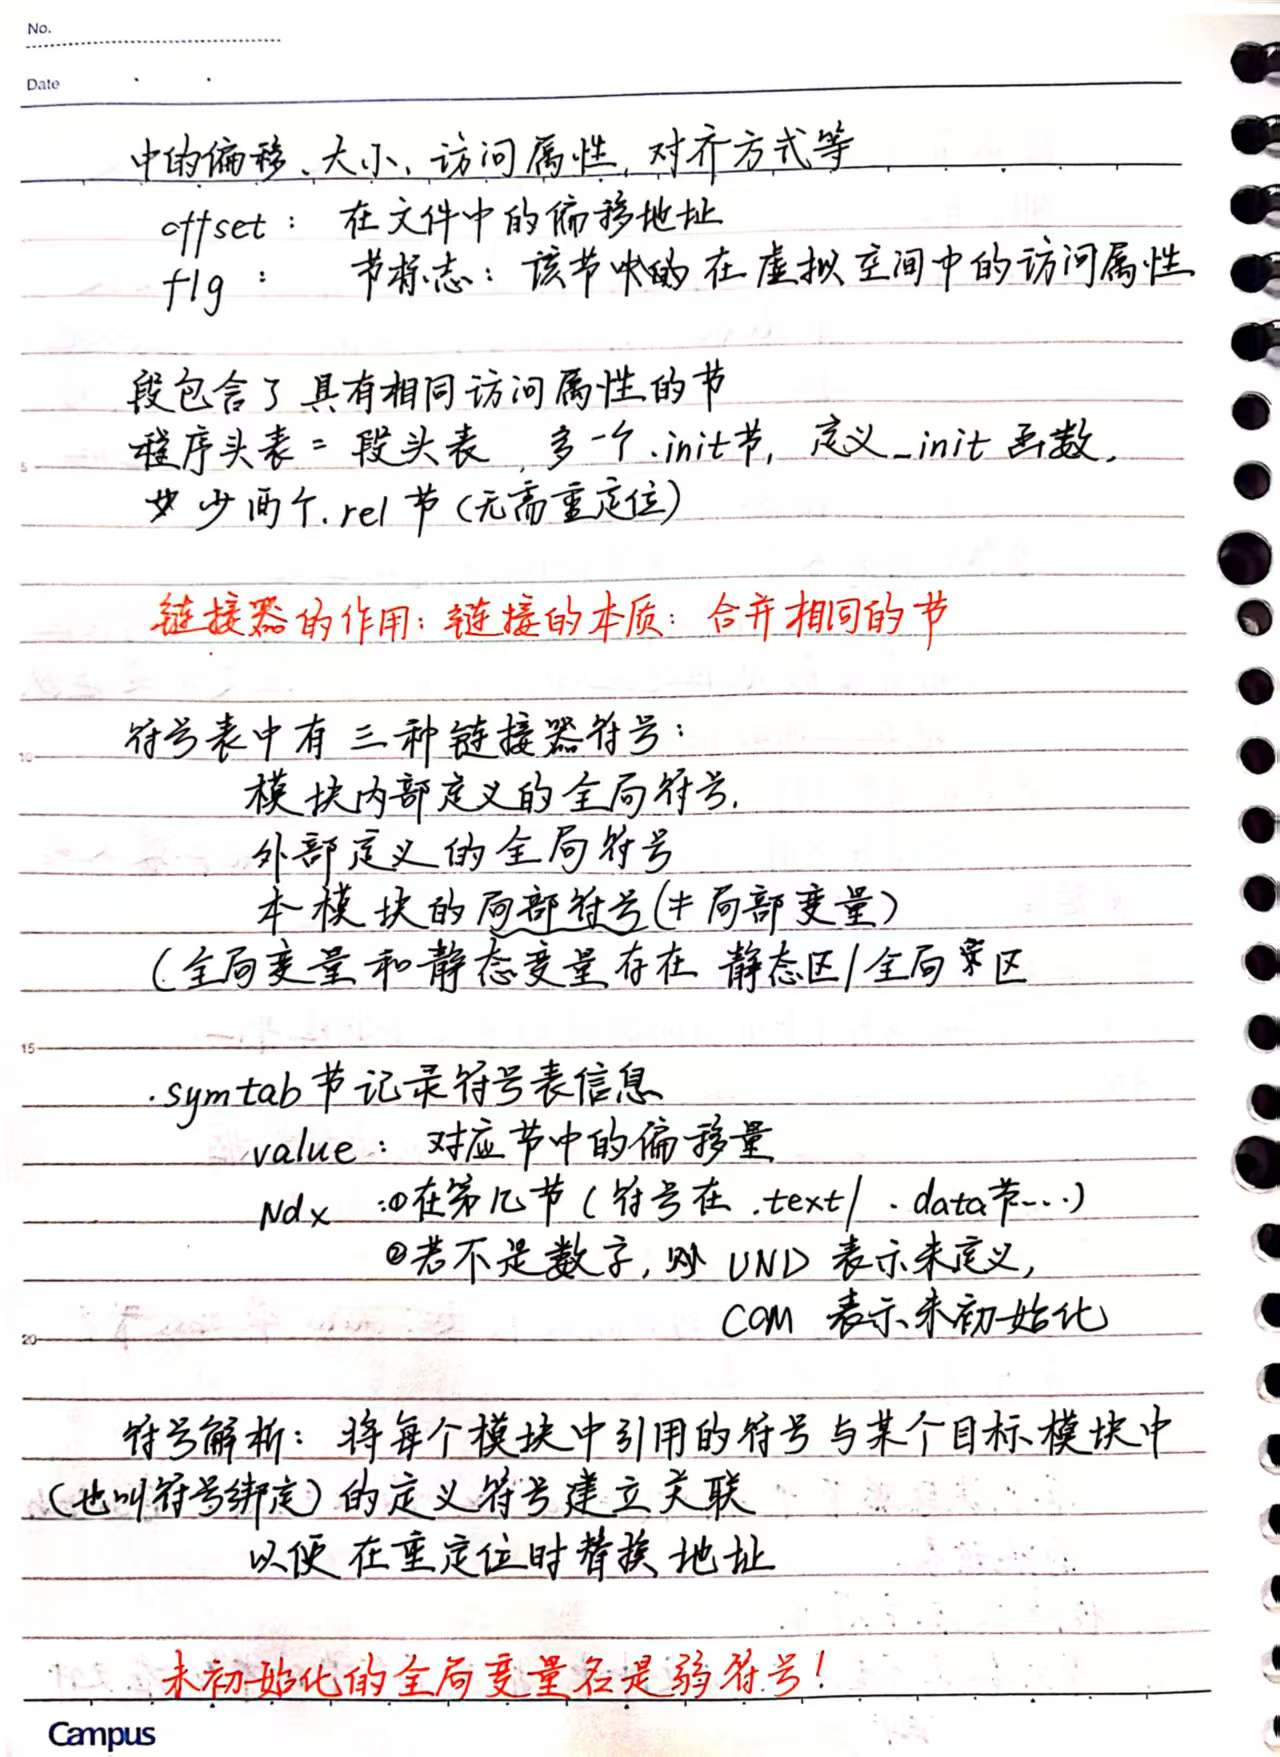 No.
Date
中的偏移、大小、访问属性,对齐方式等
offset: 在文件中的偏移地址
flg: 节标志:该节的在虚拟空间中的访问属性
段包含了具有相同访问属性的节
程序头表=段头表,多一个.init节,定义_init函数,
少两个.rel节(无需重定位)
链接器的作用:链接的本质:合并相同的节
符号表中有三种链接器符号:
模块内部定义的全局符号,
外部定义的全局符号
本模块的局部符号(≠局部变量)
(全局变量和静态变量存在 静态区/全局区
.symtab节记录符号表信息
value: 对应节中的偏移量
Ndx :①在第几节(符号在.text/.data节...)
②若不是数字,则UND表示未定义,
COM 表示未初始化
符号解析:将每个模块中引用的符号与某个目标模块中
(也叫符号绑定)的定义符号建立关联
以便在重定位时替换地址
未初始化的全局变量名是弱符号!
5
10
15
20
Campus